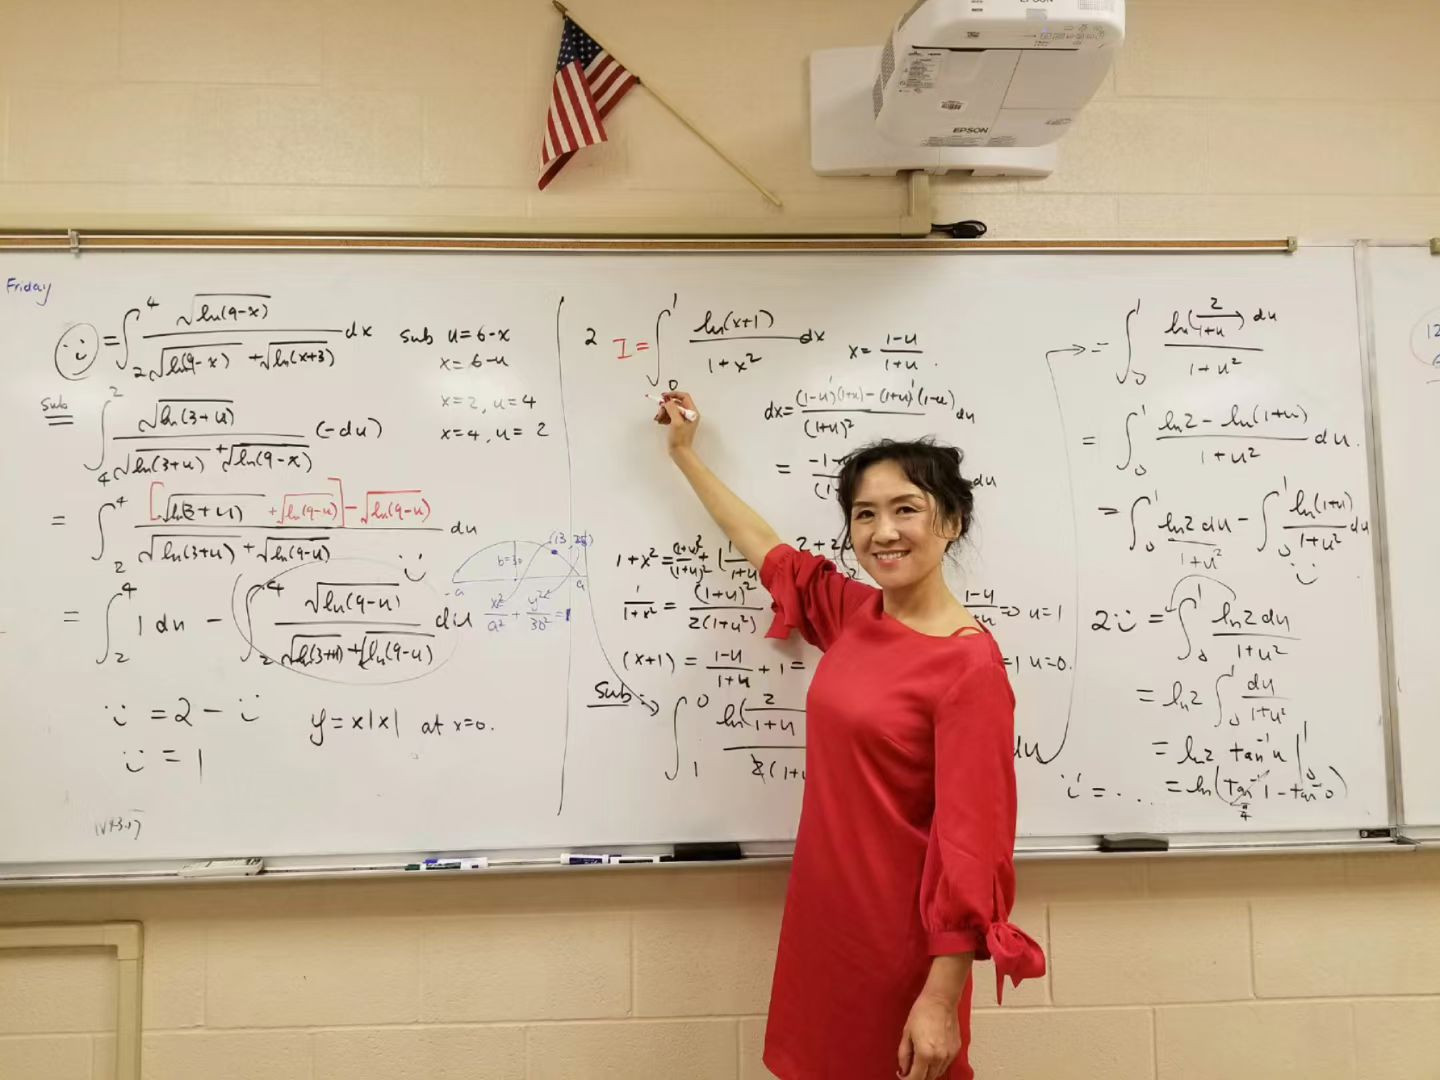 EPSON
EPSON
Friday
= ∫₂⁴ √ln(9-x) / (√ln(9-x) + √ln(x+3)) dx
sub u=6-x
x=6-u
x=2, u=4
x=4, u=2
sub
∫₄² √ln(3+u) / (√ln(3+u) + √ln(9-x)) (-du)
= ∫₂⁴ ([√ln(3+u) + √ln(9-u)] - √ln(9-u)) / (√ln(3+u) + √ln(9-u)) du
= ∫₂⁴ 1 du - ∫₂⁴ √ln(9-u) / (√ln(3+u) + √ln(9-u)) du
= 2 -
= 1
y = x|x| at x=0.
b=30
(13, 28)
-a a
x²/a² + y²/30² = 1
2 I = ∫₀¹ ln(x+1) / (1+x²) dx
x = (1-u)/(1+u).
dx = ((1-u)'(1+u) - (1+u)'(1-u)) / (1+u)² du
= du
1+x² =
1/(1+x²) = (1+u)² / 2(1+u²)
(x+1) = (1-u)/(1+u) + 1 =
=0 u=1
=1 u=0.
Sub:
∫₁⁰ ln(2/(1+u)
du
= ∫₀¹ ln(2/(1+u)) / (1+u²) du
= ∫₀¹ (ln2 - ln(1+u)) / (1+u²) du.
= ∫₀¹ ln2 du / (1+u²) - ∫₀¹ ln(1+u) / (1+u²) du
2 = ∫₀¹ ln2 du / (1+u²)
= ln2 ∫₀¹ du / (1+u²)
= ln2 tan⁻¹u |₀¹
= ... = ln(tan⁻¹1 - tan⁻¹0)
π/4
12